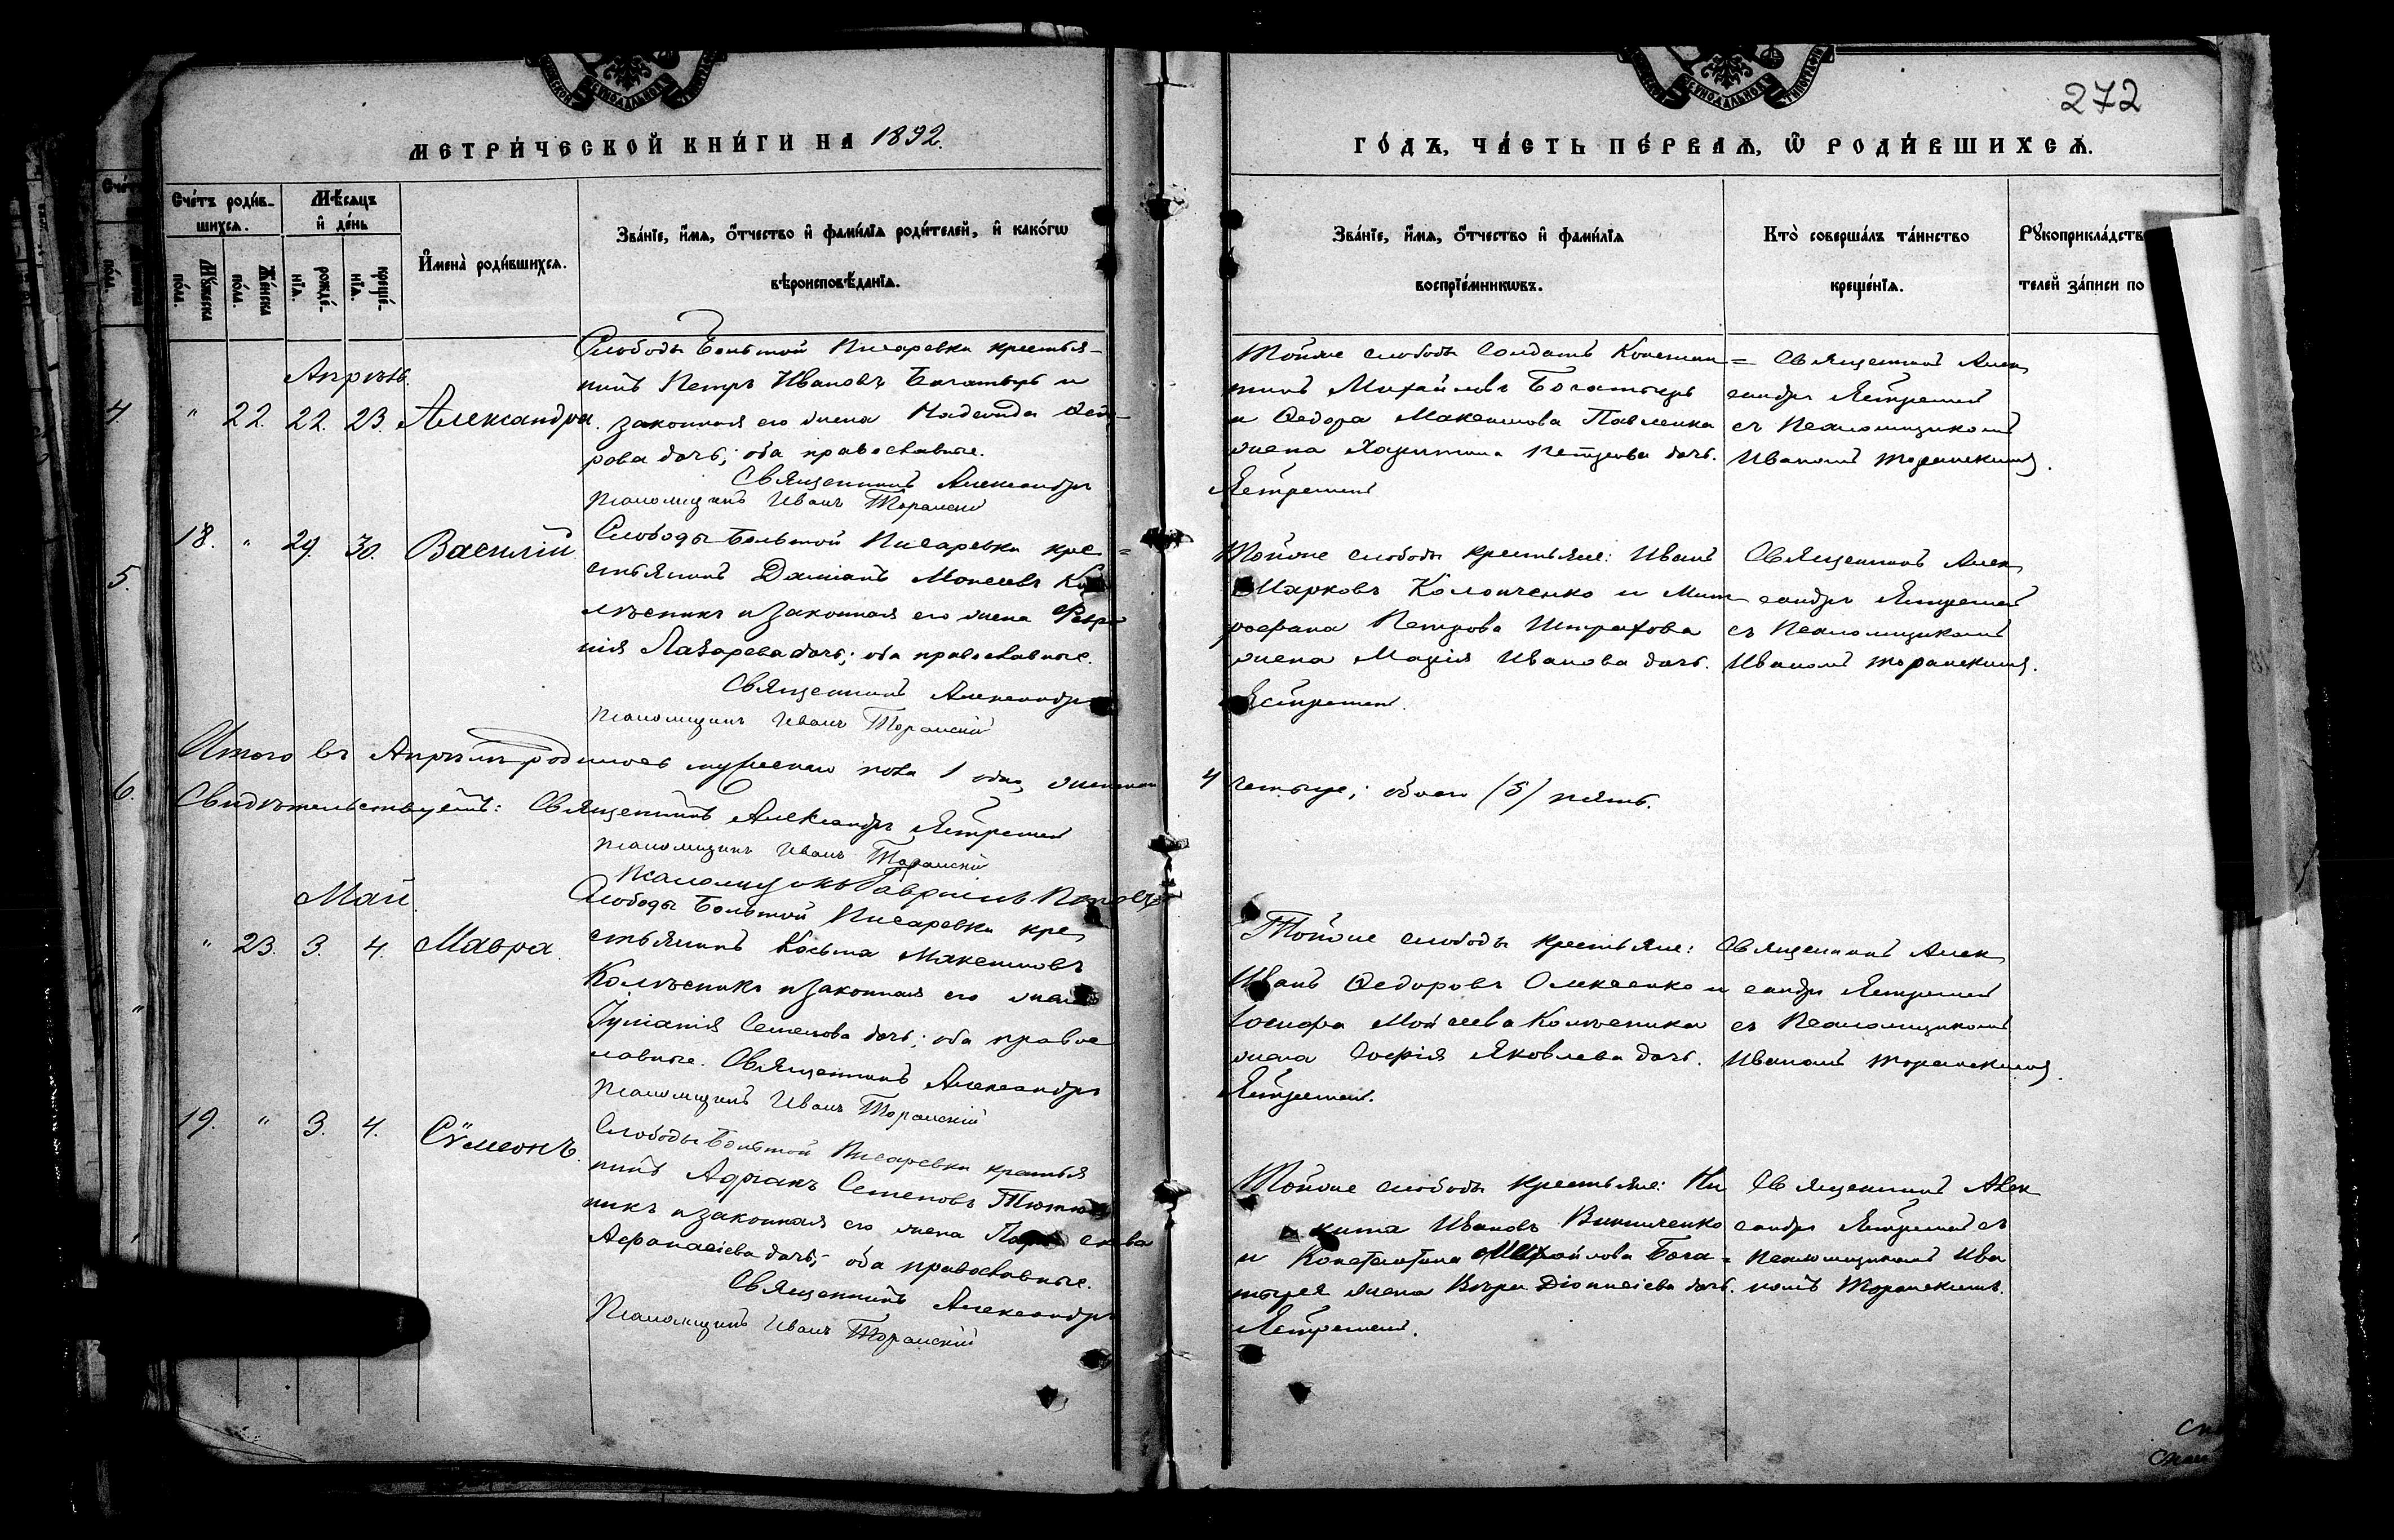 272
МЕТРИ́ЧЕСКОЙ КНИ́ГИ НА 1892.
ГО́ДЪ, ЧА́СТЬ ПЕ́РВАѦ, Ѡ҆ РОДИ́ВШИХСѦ.
Сче́тъ роди́в-
шихсѧ.
Мѣ́сѧцъ
и҆ де́нь
Мꙋ́жеска
по́ла.
Же́нска
по́ла.
рожде́-
нїѧ.
креще́-
нїѧ.
И҆мена̀ роди́вшихсѧ.
Зва́нїе, и҆́мѧ, ѻ҆́тчество и҆ фами́лїѧ роди́телей, и҆ како́гѡ
вѣроисповѣ́данїѧ.
Зва́нїе, и҆́мѧ, ѻ҆́тчество и҆ фами́лїѧ
воспрїе́мникѡвъ.
Кто̀ соверша́лъ та́инство
креще́нїѧ.
Рꙋкоприкла́дств
телей за́писи по
Апрѣль.
" 22. 22. 23. Александра.
Слободы Большой Писаревки крестья-
нинъ Петръ Ивановъ Богатырь и
законная его жена Надежда Ѳеодо-
рова дочь; оба православные.
Священникъ Александръ
Псаломщикъ Иванъ Торанскій
Тойже слободы Солдатъ Констан=
тинъ Михайловъ Богатырь
и Ѳедора Максимова Павленка
жена Харитина Петрова дочь.
Ястремскій
Священникъ Алек
сандръ Ястремскій
съ Псаломщикомъ
Иваномъ Торанскимъ.
18. " 29. 30. Василій
Слободы Большой Писаревки кре=
стьянинъ Даміанъ Моисеевъ Ко
лѣсникъ и законная его жена
нія Лазарева дочь; оба православные.
Священникъ Александръ
Псаломщикъ Иванъ Торанскій
Тойже слободы крестьяне: Иванъ
Марковъ Коломченко и Мит
рофана Петрова Штрахова
жена Марія Иванова дочь.
Ястремскій.
Священникъ Алек
сандръ Ястремскій
съ Псаломщикомъ
Иваномъ Торанскимъ.
Итого въ Апрѣлѣ родилось мужескаго пола 1 одинъ, женскаго 4 четыре; обоего (5) пять.
Свидѣтельствуемъ: Священникъ Александръ Ястремскій
Псаломщикъ Иванъ Торанскій
Псаломщикъ Гавріилъ Поповъ
Май.
" 23. 3. 4. Мавра.
Слободы Большой Писаревки кре
стьянинъ Косьма Максимовъ
Колѣсникъ и законная его жена
Іуліанія Семенова дочь; оба правос
лавные. Священникъ Александръ
Псаломщикъ Иванъ Торанскій
Тойже слободы крестьяне:
Иванъ Ѳедоровъ Олексенко и
Іосифа Мойсеева Колѣсника
жена Софія Яковлева дочь.
Ястремскій.
Священникъ Алек
сандръ Ястремскій
съ Псаломщикомъ
Иваномъ Торанскимъ.
19. " 3. 4. Сѵмеонъ.
Слободы Большой Писаревки крестья
нинъ Адріанъ Семеновъ
никъ и законная его жена Параскева
Аѳанасіева дочь; оба православные.
Священникъ Александръ
Псаломщикъ Иванъ Торанскій
Тойже слободы крестьяне: Ни
кита Ивановъ Винниченко
и Константина Михайлова Бога=
тыря жена Вѣра Діонисіева дочь.
Ястремскій.
Священникъ Алек
сандръ Ястремскій съ
Псаломщикомъ Ива
номъ Торанскимъ.
4.
5.
6.